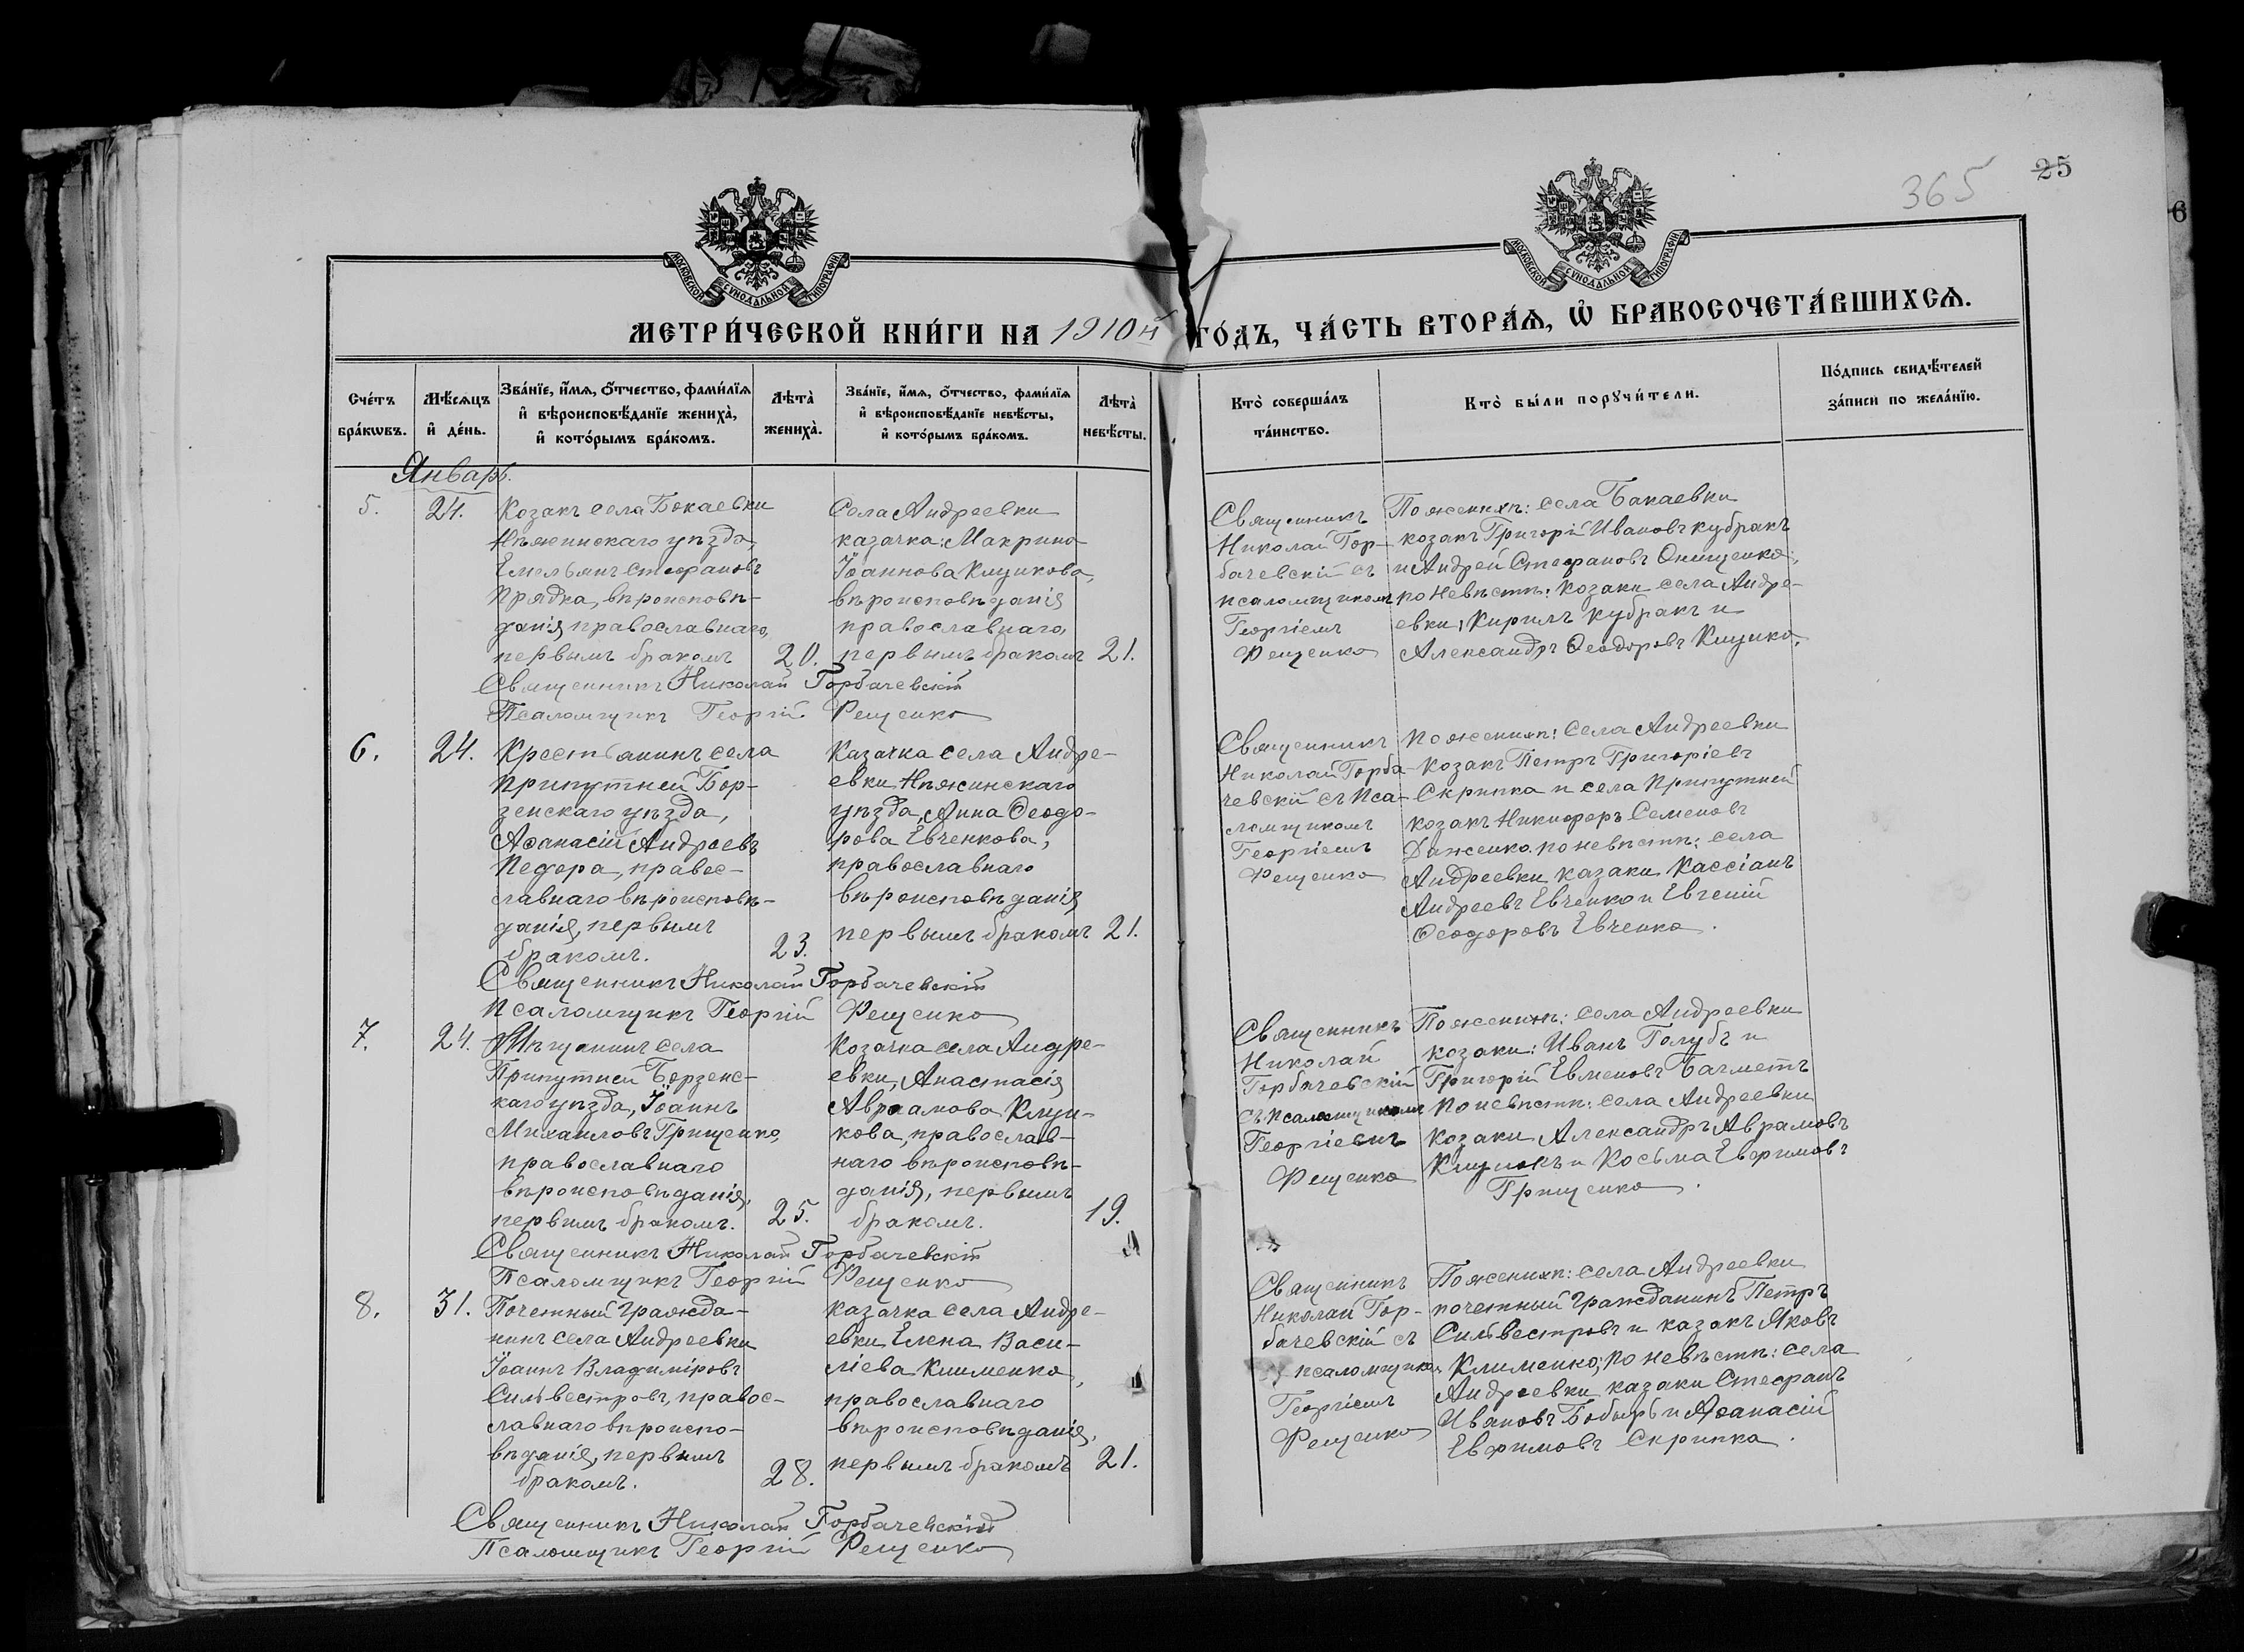 365
25
6
МОСКОВСКОЙ СУНОДАЛЬНОЙ ТИПОГРАФІИ
МОСКОВСКОЙ СУНОДАЛЬНОЙ ТИПОГРАФІИ
МЕТРИ́ЧЕСКОЙ КНИ́ГИ НА 1910й ГО́ДЪ, ЧА́СТЬ ВТОРА́Ѧ, Ѽ БРАКОСОЧЕТА́ВШИХСѦ.
Сче́тъ бра́кѡвъ.
Мѣ́сѧцъ и҆ де́нь.
Зва́нїе, и҆́мѧ, ѻ҆́тчество, фами́лїѧ и҆ вѣроисповѣ́данїе жениха̀, и҆ кото́рымъ бра́комъ.
Лѣта̀ жениха̀.
Зва́нїе, и҆́мѧ, ѻ҆́тчество, фами́лїѧ и҆ вѣроисповѣ́данїе невѣ́сты, и҆ кото́рымъ бра́комъ.
Лѣта̀ невѣ́сты.
Кто̀ соверша́лъ та́инство.
Кто̀ бы́ли порꙋчи́тели.
По́дпись свидѣ́телей за́писи по жела́нїю.
Январь.
5.
24.
Козакъ села Бакаевки
Нѣжинскаго уѣзда,
Емельянъ Стефановъ
Прядка, вѣроисповѣ-
данія православнаго,
первымъ бракомъ
20.
Села Андреевки
казачка: Макрина
Іоаннова Кицикова,
вѣроисповѣданія
православнаго,
первымъ бракомъ
21.
Священникъ
Николай Гор-
бачевскій съ
псаломщикомъ
Георгіемъ
Рещенко
По женихѣ: села Бакаевки
козакъ Григорій Ивановъ Кубракъ
и Андрей Стефановъ Онищенко;
по невѣстѣ: козаки села Андре-
евки, Кирилъ Кубракъ и
Александръ Ѳеодоровъ Кицико.
Священникъ Николай Горбачевскій
Псаломщикъ Георгій Рещенко
6.
24.
Крестьянинъ села
Припутней Бор-
зенскаго уѣзда,
Аѳанасій Андреевъ
Педора, правос-
лавнаго вѣроисповѣ-
данія, первымъ
бракомъ.
23.
Казачка села Андре-
евки Нѣжинскаго
уѣзда, Анна Ѳеодо-
рова Евченкова,
православнаго
вѣроисповѣданія
первымъ бракомъ
21.
Священникъ
Николай Горба-
чевскій съ Пса-
ломщикомъ
Георгіемъ
Рещенко
По женихѣ: села Андреевки
козакъ Петръ Григоріевъ
Скрипка и села Припутней
козакъ Никифоръ Семеновъ
Даженко. по невѣстѣ: села
Андреевки казаки Кассіанъ
Андреевъ Евченко и Евгеній
Ѳеодоровъ Евченко.
Священникъ Николай Горбачевскій
Псаломщикъ Георгій Рещенко
7.
24.
Мѣщанинъ села
Припутней Борзенс-
каго уѣзда, Іоаннъ
Михаиловъ Грищенко,
православнаго
вѣроисповѣданія,
первымъ бракомъ.
25.
Козачка села Андре-
евки, Анастасія
Авраамова Кици-
кова, православ-
наго вѣроисповѣ-
данія, первымъ
бракомъ.
19.
Священникъ
Николай
Горбачевскій
съ псаломщикомъ
Георгіемъ
Рещенко
По женихѣ: села Андреевки
козаки: Иванъ Голубъ и
Григорій Евменовъ Бахметъ
По невѣстѣ: села Андреевки
козаки Александръ Аврамовъ
и Косьма Евфимовъ
Грищенко.
Священникъ Николай Горбачевскій
Псаломщикъ Георгій Рещенко
8.
31.
Почетный гражда-
нинъ села Андреевки
Іоаннъ Владиміровъ
Сильвестровъ, правос-
лавнаго вѣроиспо-
вѣданія, первымъ
бракомъ.
28.
казачка села Андре-
евки Елена Васи-
ліева Клименко,
православнаго
вѣроисповѣданія,
первымъ бракомъ
21.
Священникъ
Николай Гор-
бачевскій съ
псаломщиком
Георгіемъ
Рещенко
По женихѣ: села Андреевки
почетный гражданинъ Петръ
Сильвестровъ и казакъ Яковъ
Клименко; по невѣстѣ: села
Андреевки казаки Стефанъ
Ивановъ Бобырь и Аѳанасій
Евфимовъ Скрипка.
Священникъ Николай Горбачевскій
Псаломщикъ Георгій Рещенко